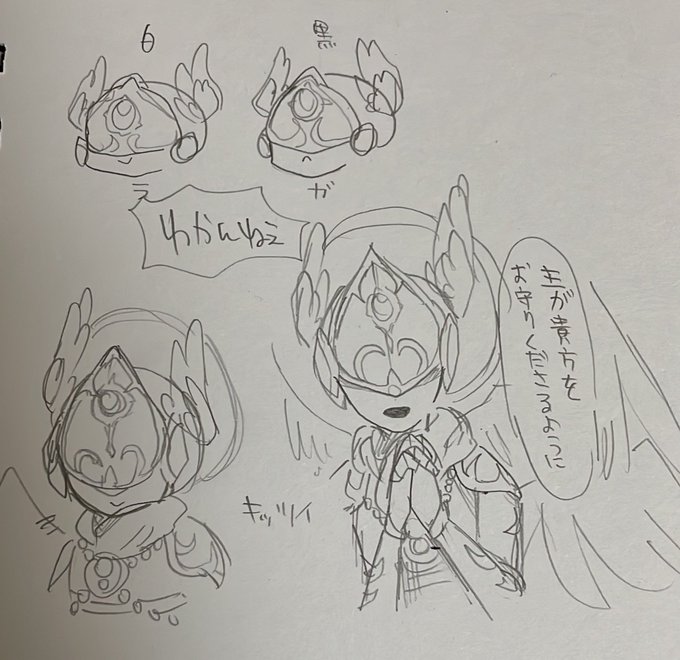 白
黒
ガ
わかんねえ
主が貴方を
お守りくださるように
キッツイ